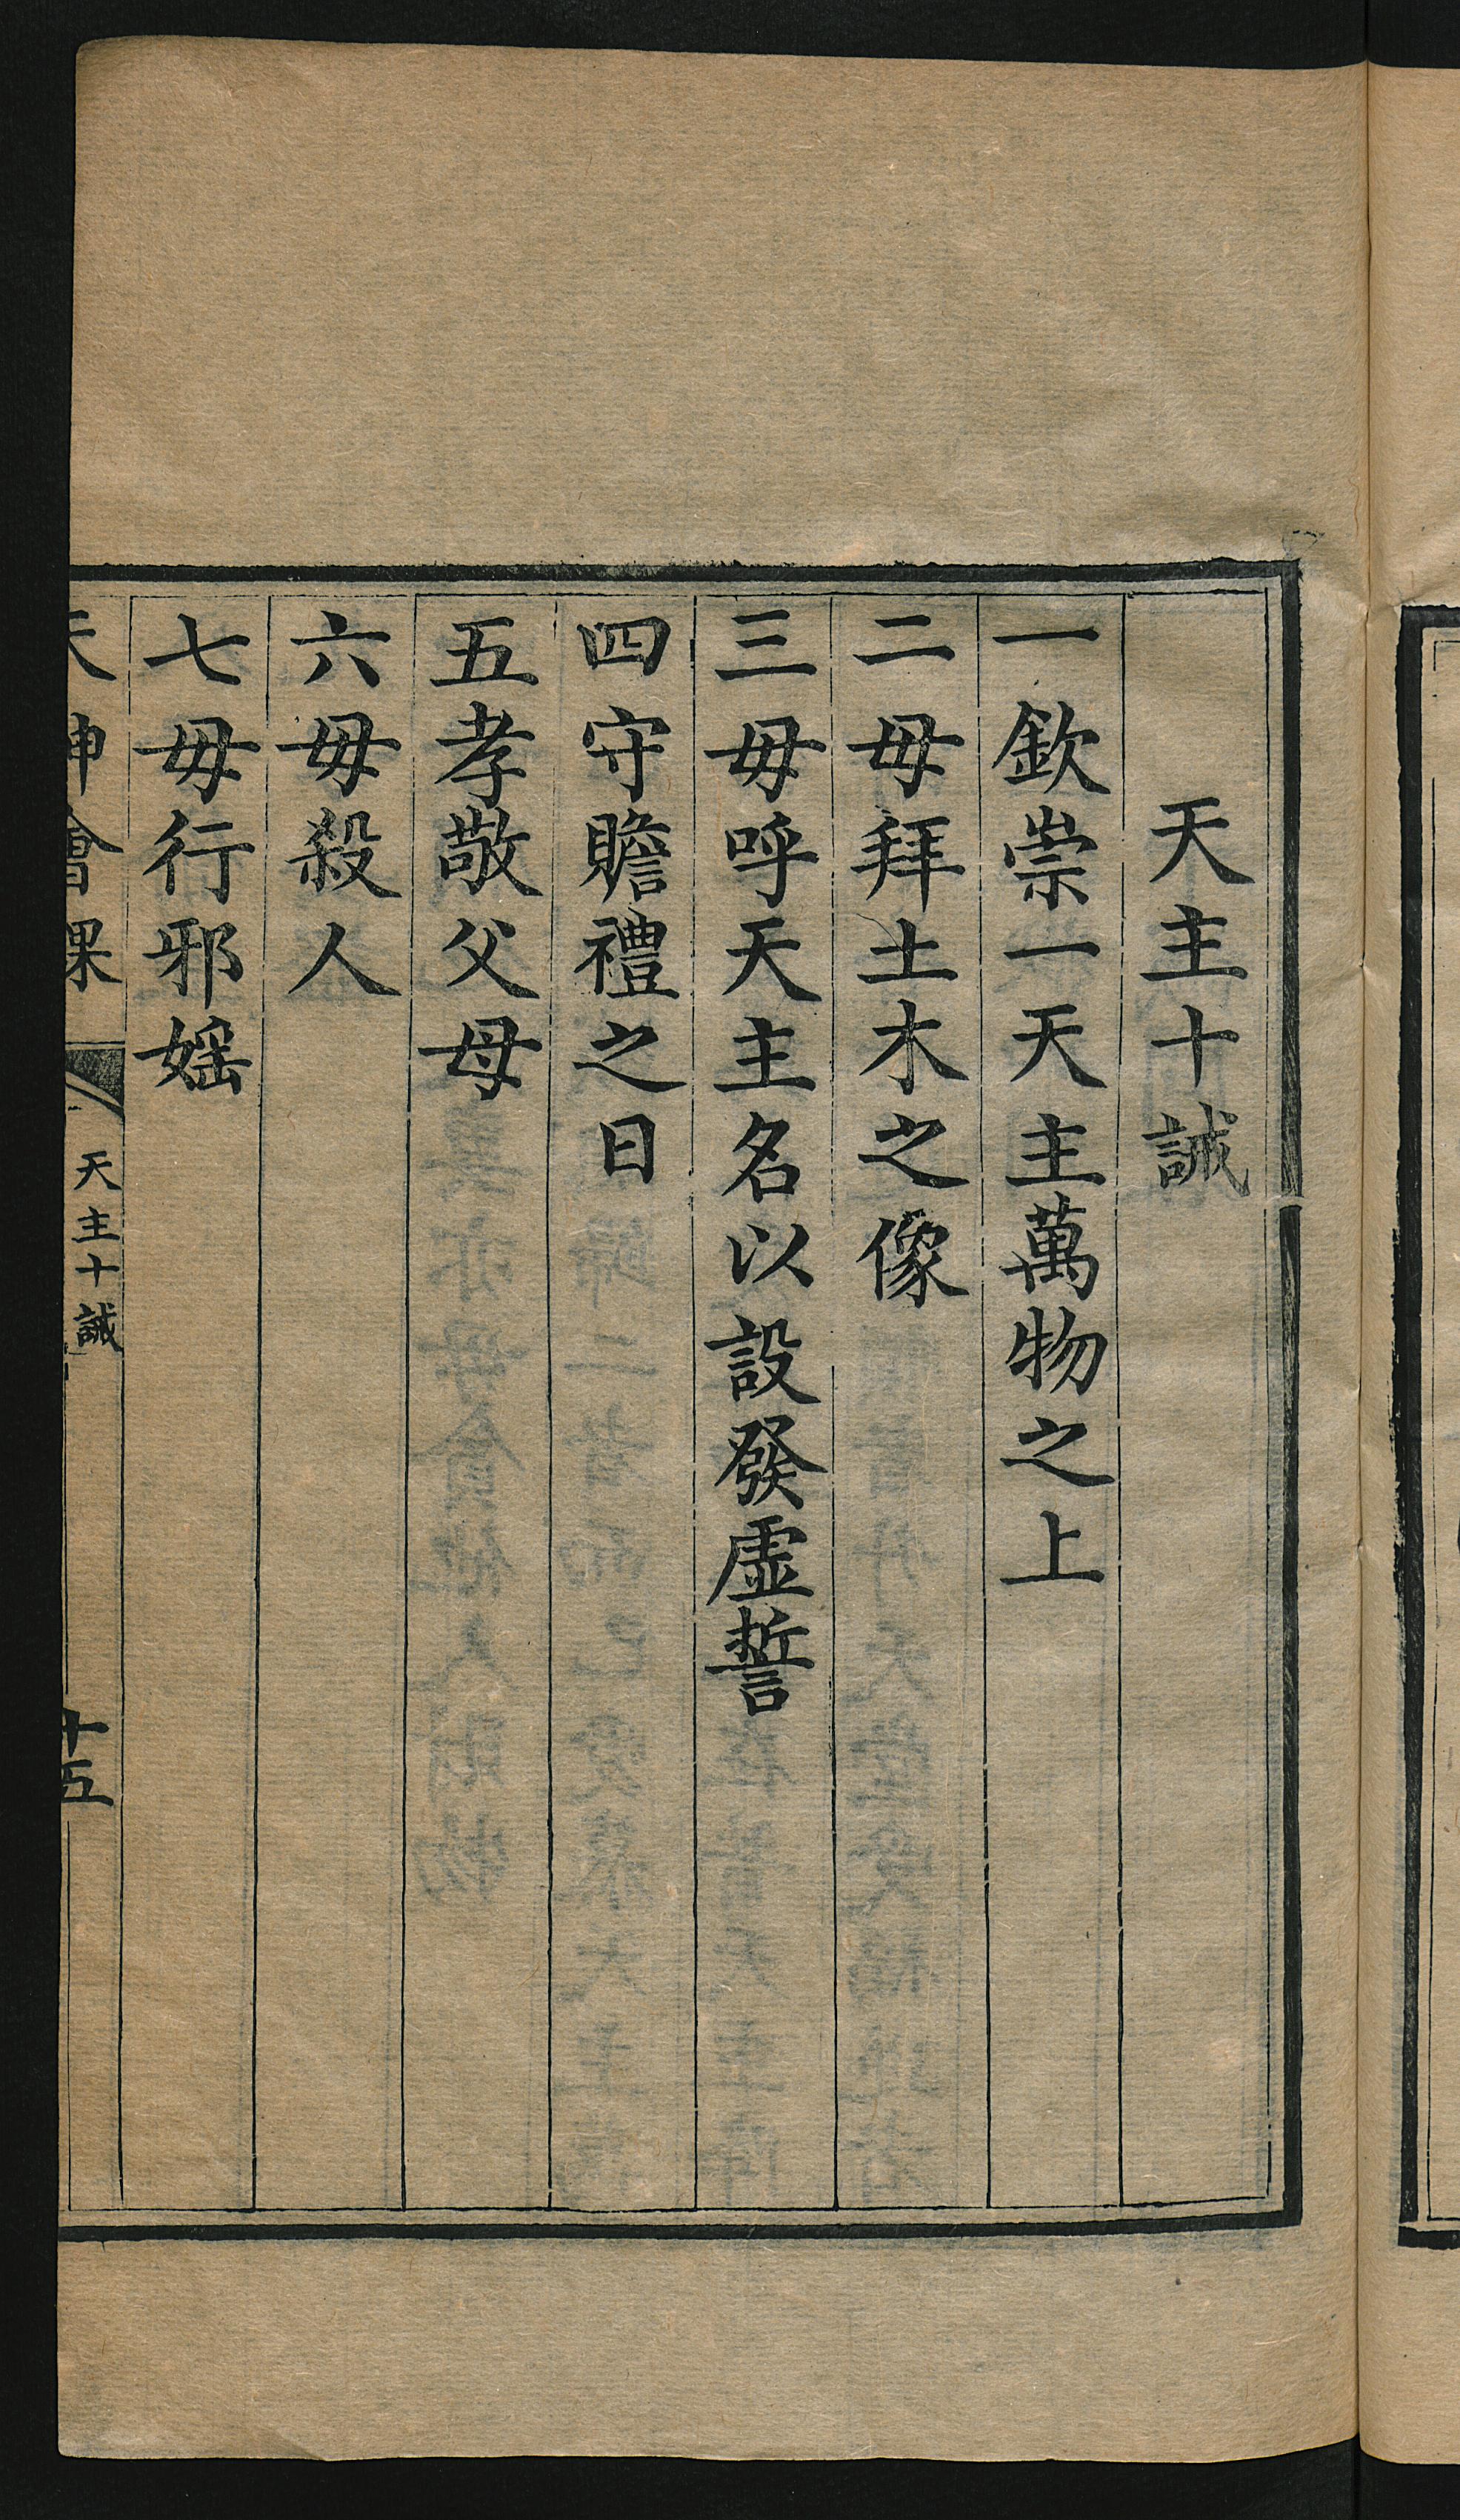 天主十誡
一欽崇一天主萬物之上
二毋拜土木之像
三毋呼天主名以設發虛誓
四守瞻禮之日
五孝敬父母
六毋殺人
七毋行邪婬
天神會課
天主十誡
十五